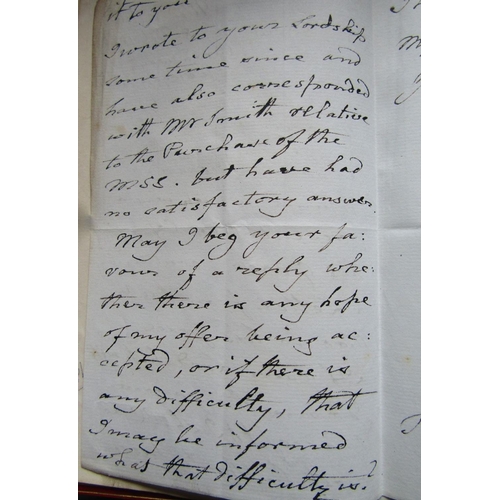 it to you
I wrote to your Lordship
some time since and
have also corresponded
with Mr Smith relative
to the Purchase of the
MSS. but have had
no satisfactory answer.
May I beg your fa:
vour of a reply whe:
ther there is any hope
of my offer being ac:
cepted, or if there is
any difficulty, that
I may be informed
what that difficulty is?